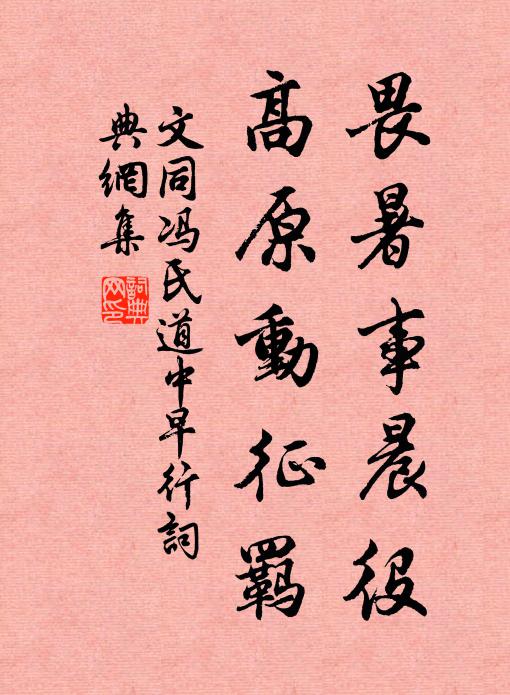 畏暑事晨役
高原動征羈
文同冯氏道中早行詞
典網集
詞典
网印